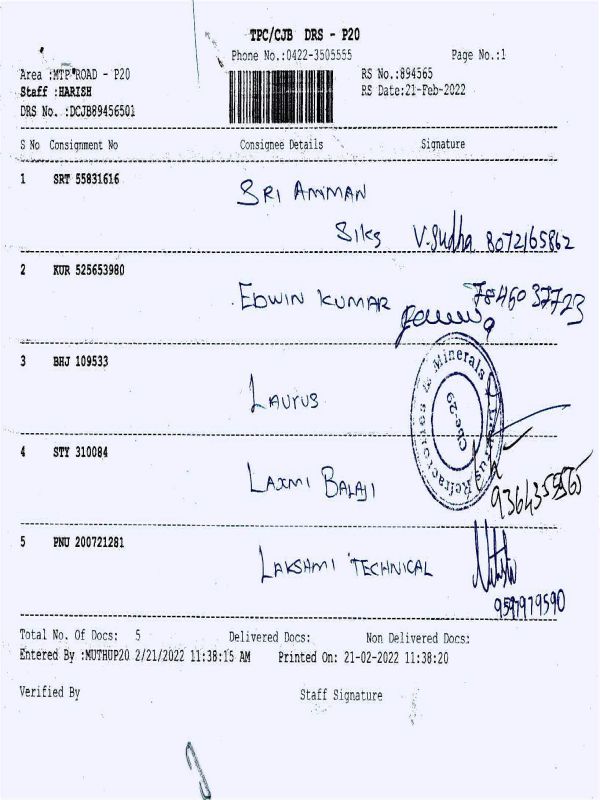 TPC/CJB DRS - P20
Phone No.:0422-3505555 Page No.:1
Area :MTP ROAD - P20 RS No.:894565
Staff :HARISH RS Date:21-Feb-2022
DRS No. :DCJB89456501
S No Consignment No Consignee Details Signature
1 SRT 55831616 SRI AMMAN
Silks V.Sudha 8072165862
2 KUR 525653980 EDWIN KUMAR
3 BHJ 109533 LAURUS
Laurus Refractories & Minerals
Cbe-29
4 STY 310084 LAXMI BALAJI
5 PNU 200721281 LAKSHMI TECHNICAL
Total No. Of Docs: 5 Delivered Docs: Non Delivered Docs:
Entered By :MUTHUP20 2/21/2022 11:38:15 AM Printed On: 21-02-2022 11:38:20
Verified By Staff Signature